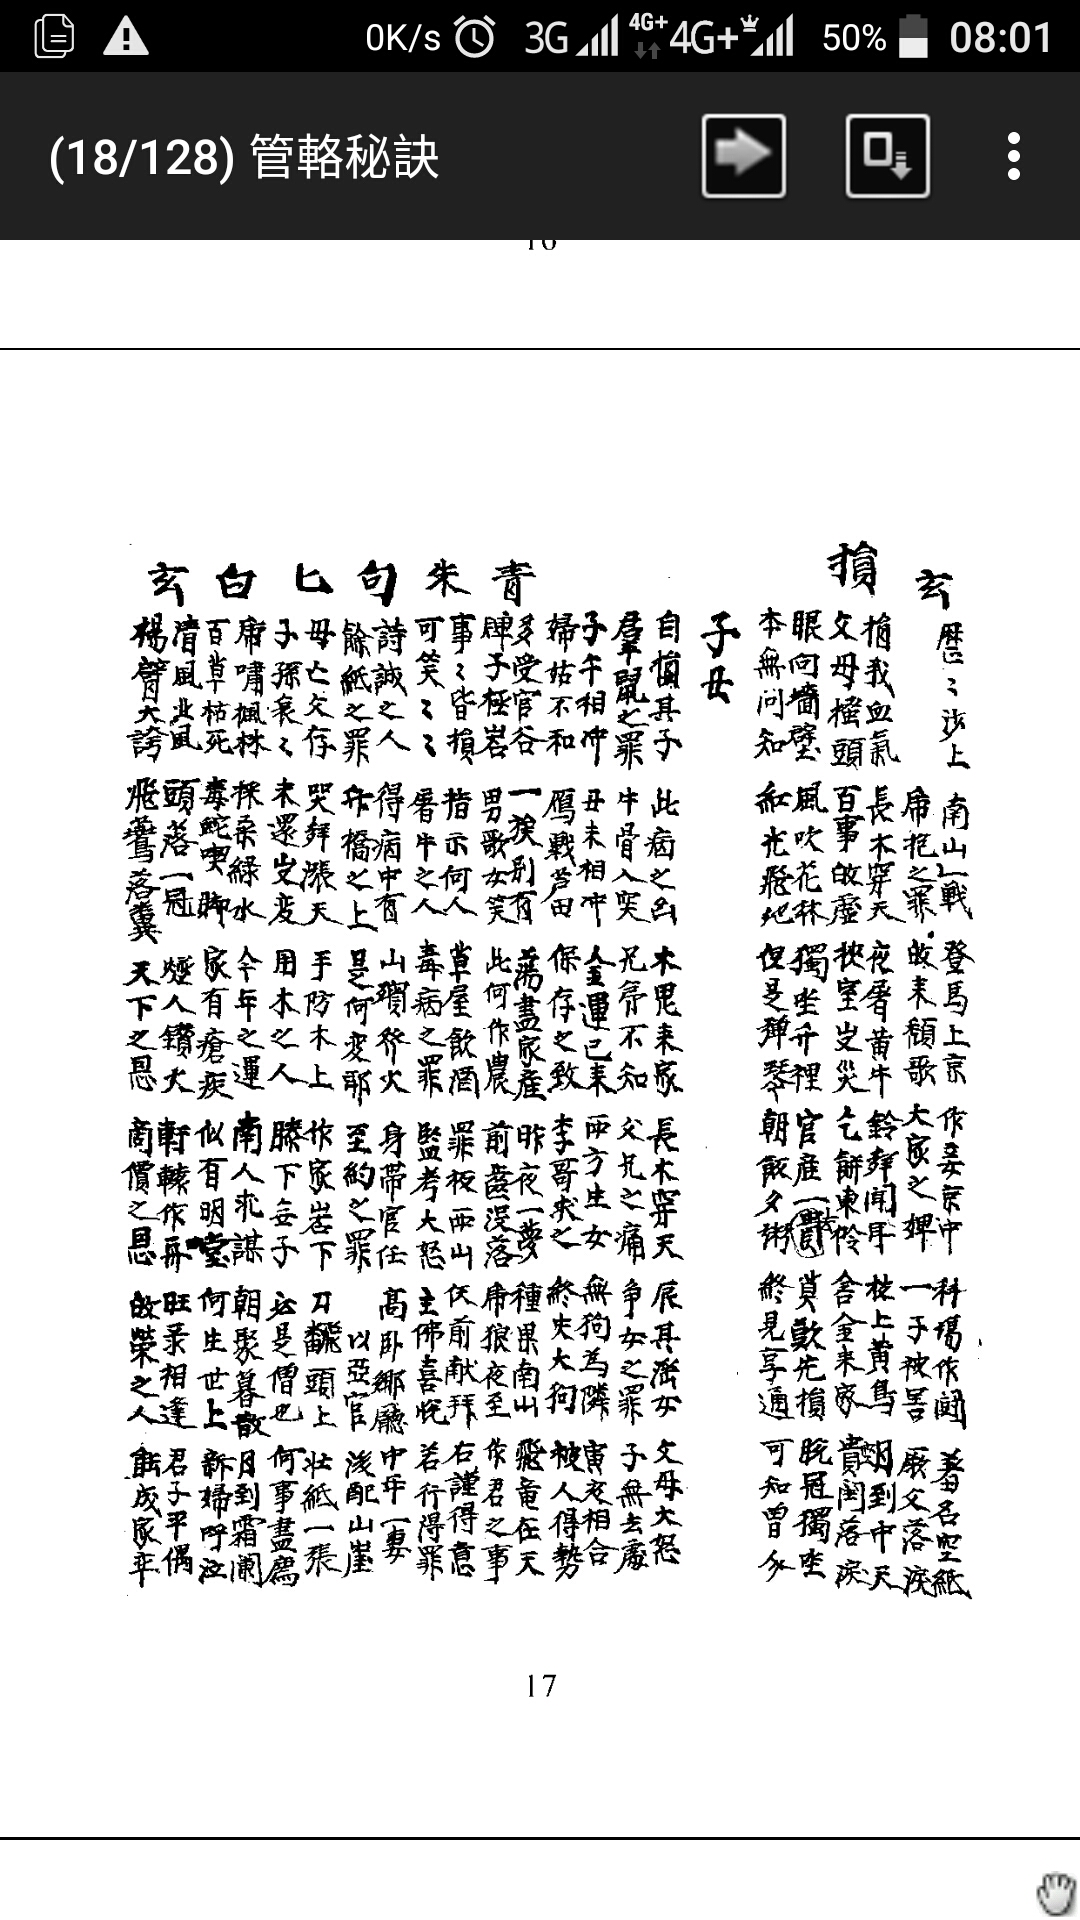 0K/s 3G 4G+ 4G+ 50% 08:01
(18/128) 管輅秘訣
16
玄
歷〻沙上 南山一戰 登馬上京 作妾京中 科場作鬪 善名空紙
抱之罪 故来顧歌 大家之婢 一子被害 厥父落淚
損
損我血氣 長木穿天 夜屠黄牛 鈴聲聞耳 枝上黄鳥 明到中天
父母搔頭 百事故虛 災 乞餅東伶 舍金来家 貴閨落淚
眼向墻壁 風吹花林 獨坐升裡 官庭一 莫歎先損 脫冠獨坐
本無问知 紅光飛地 但是彈琴 朝飯夕粥 終見享通 可知曽分
子女
自損其子 此病之凶 木鬼来家 長木穿天 辰其淫女 父母大怒
羣鼠之罪 牛骨入突 兄弟不知 父兄之痛 争女之罪 子無去處
子午相冲 丑未相冲 金運已来 两方生女 無狗為隣 寅亥相合
婦姑不和 鴈戰芦田 保存之致 李哥求之 終失大狗 被人得勢
青
多受官谷 一族别有 蕩盡家産 昨夜一夢 種果南山 飛竜在天
碑子極岩 男歌女笑 此何作農 前齒沒落 狼夜至 作君之事
朱
事〻皆損 指示何人 草屋飲酒 罪板西山 仸前献拜 右謹得意
可笑〻〻 屠牛之人 毒病之罪 監考大怒 主佛喜恱 若行得罪
句
詩誠之人 得病中有 山殯發火 身帶官任 高卧鄉廳 中年一妻
餘紙之罪 斫橋之上 是何变耶 至約之罪 以亞官 後配山崖
匕
母亡父存 哭聲漲天 手防木上 作家岩下 刀飜頭上 壮紙一張
子孫衰〻 未還变 用木之人 膝下無子 必是僧也 何事盡焉
白
嘯楓林 採柔綠水 今年之運 南人求謀 朝聚暮散 月到霜闌
百草枯死 毒蛇喫脚 家有瘡疾 似有明堂 何生世上 新婦呼泣
玄
清風北風 頭落一冠 燈人鑽火 軒轅作再 旺录相逢 君子平偶
楊臂大誇 飛鶯落糞 天下之恩 商價之恩 故榮之人 能成家平
17